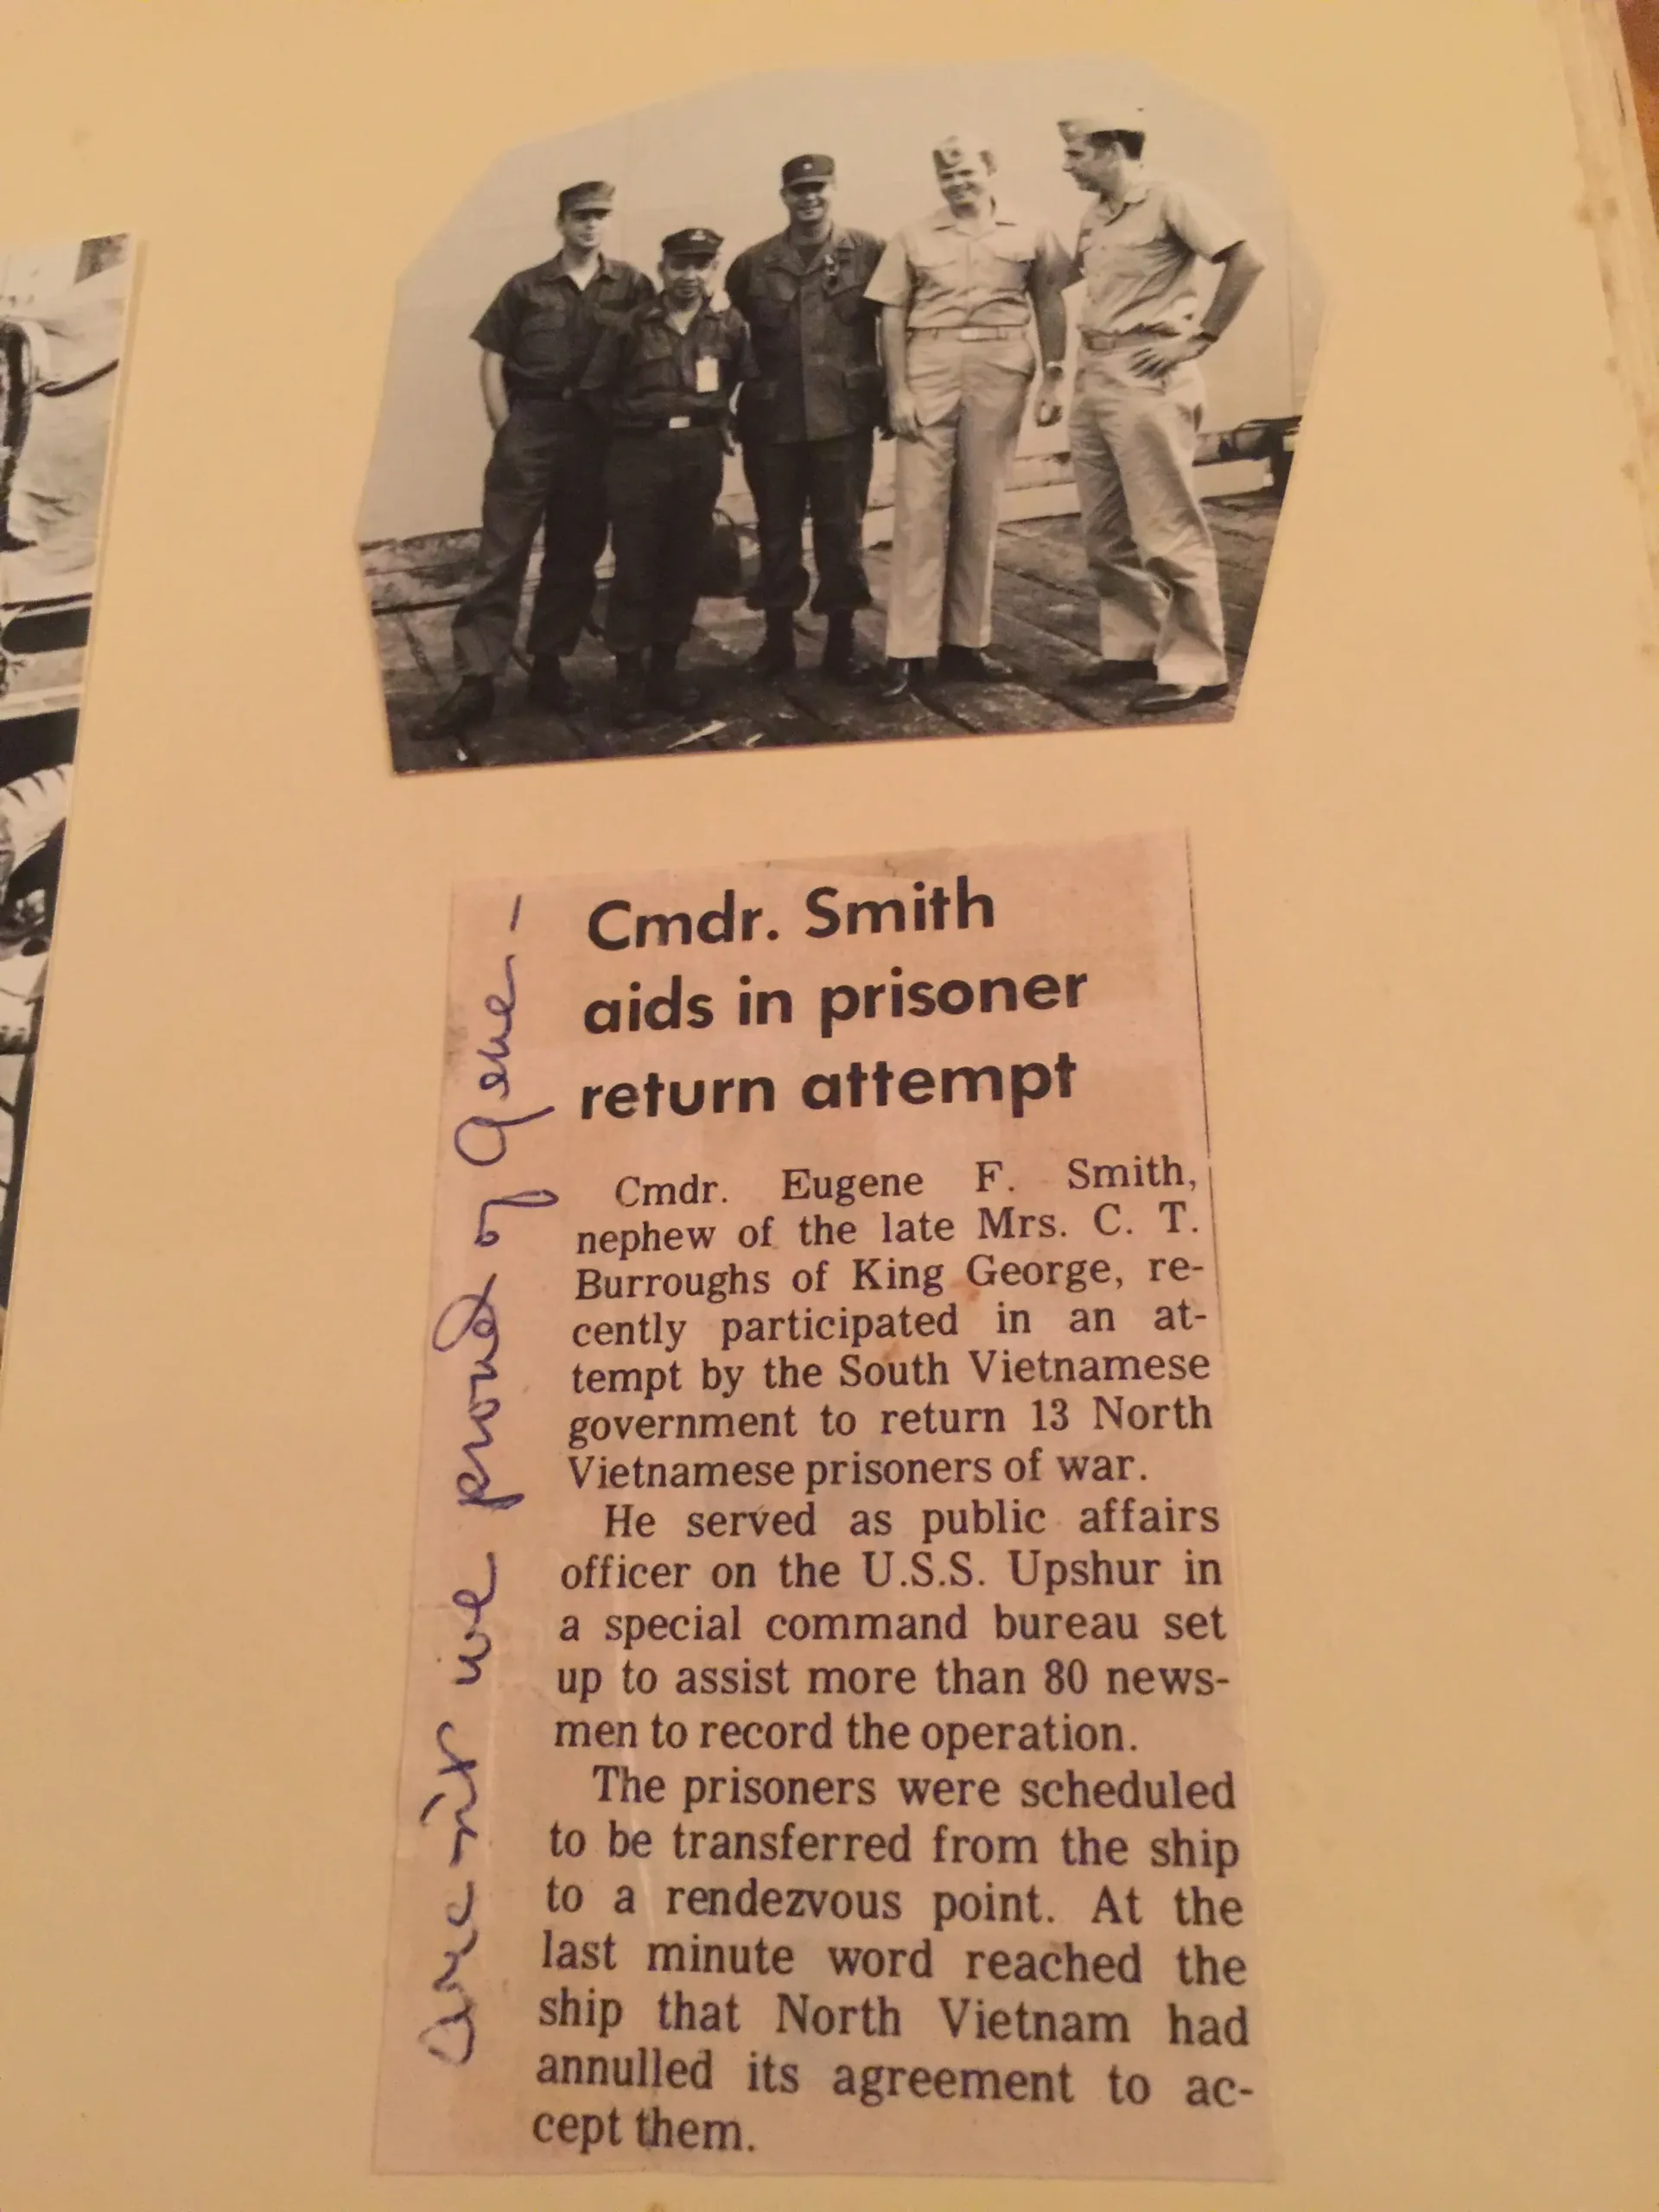 Cmdr. Smith
aids in prisoner
return attempt
Cmdr. Eugene F. Smith,
nephew of the late Mrs. C. T.
Burroughs of King George, re-
cently participated in an at-
tempt by the South Vietnamese
government to return 13 North
Vietnamese prisoners of war.
He served as public affairs
officer on the U.S.S. Upshur in
a special command bureau set
up to assist more than 80 news-
men to record the operation.
The prisoners were scheduled
to be transferred from the ship
to a rendezvous point. At the
last minute word reached the
ship that North Vietnam had
annulled its agreement to ac-
cept them.
Aren't we proud of Gene -